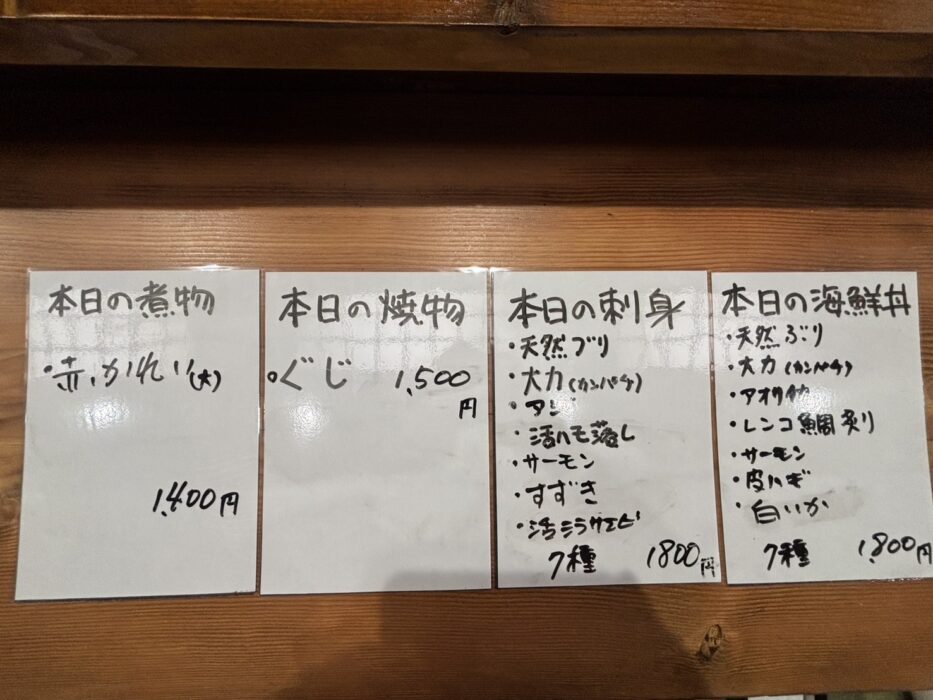 本日の煮物
・赤かれい(大)
1,400円
本日の焼物
○ぐじ 1,500
円
本日の刺身
・天然ブリ
・大力(カンパチ)
・アジ
・活ハモ落し
・サーモン
・すずき
・活シラサエビ
7種 1800円
本日の海鮮丼
・天然ぶり
・大力(カンパチ)
・レンコ鯛炙り
・サーモン
・皮ハギ
・白いか
7種 1,800円